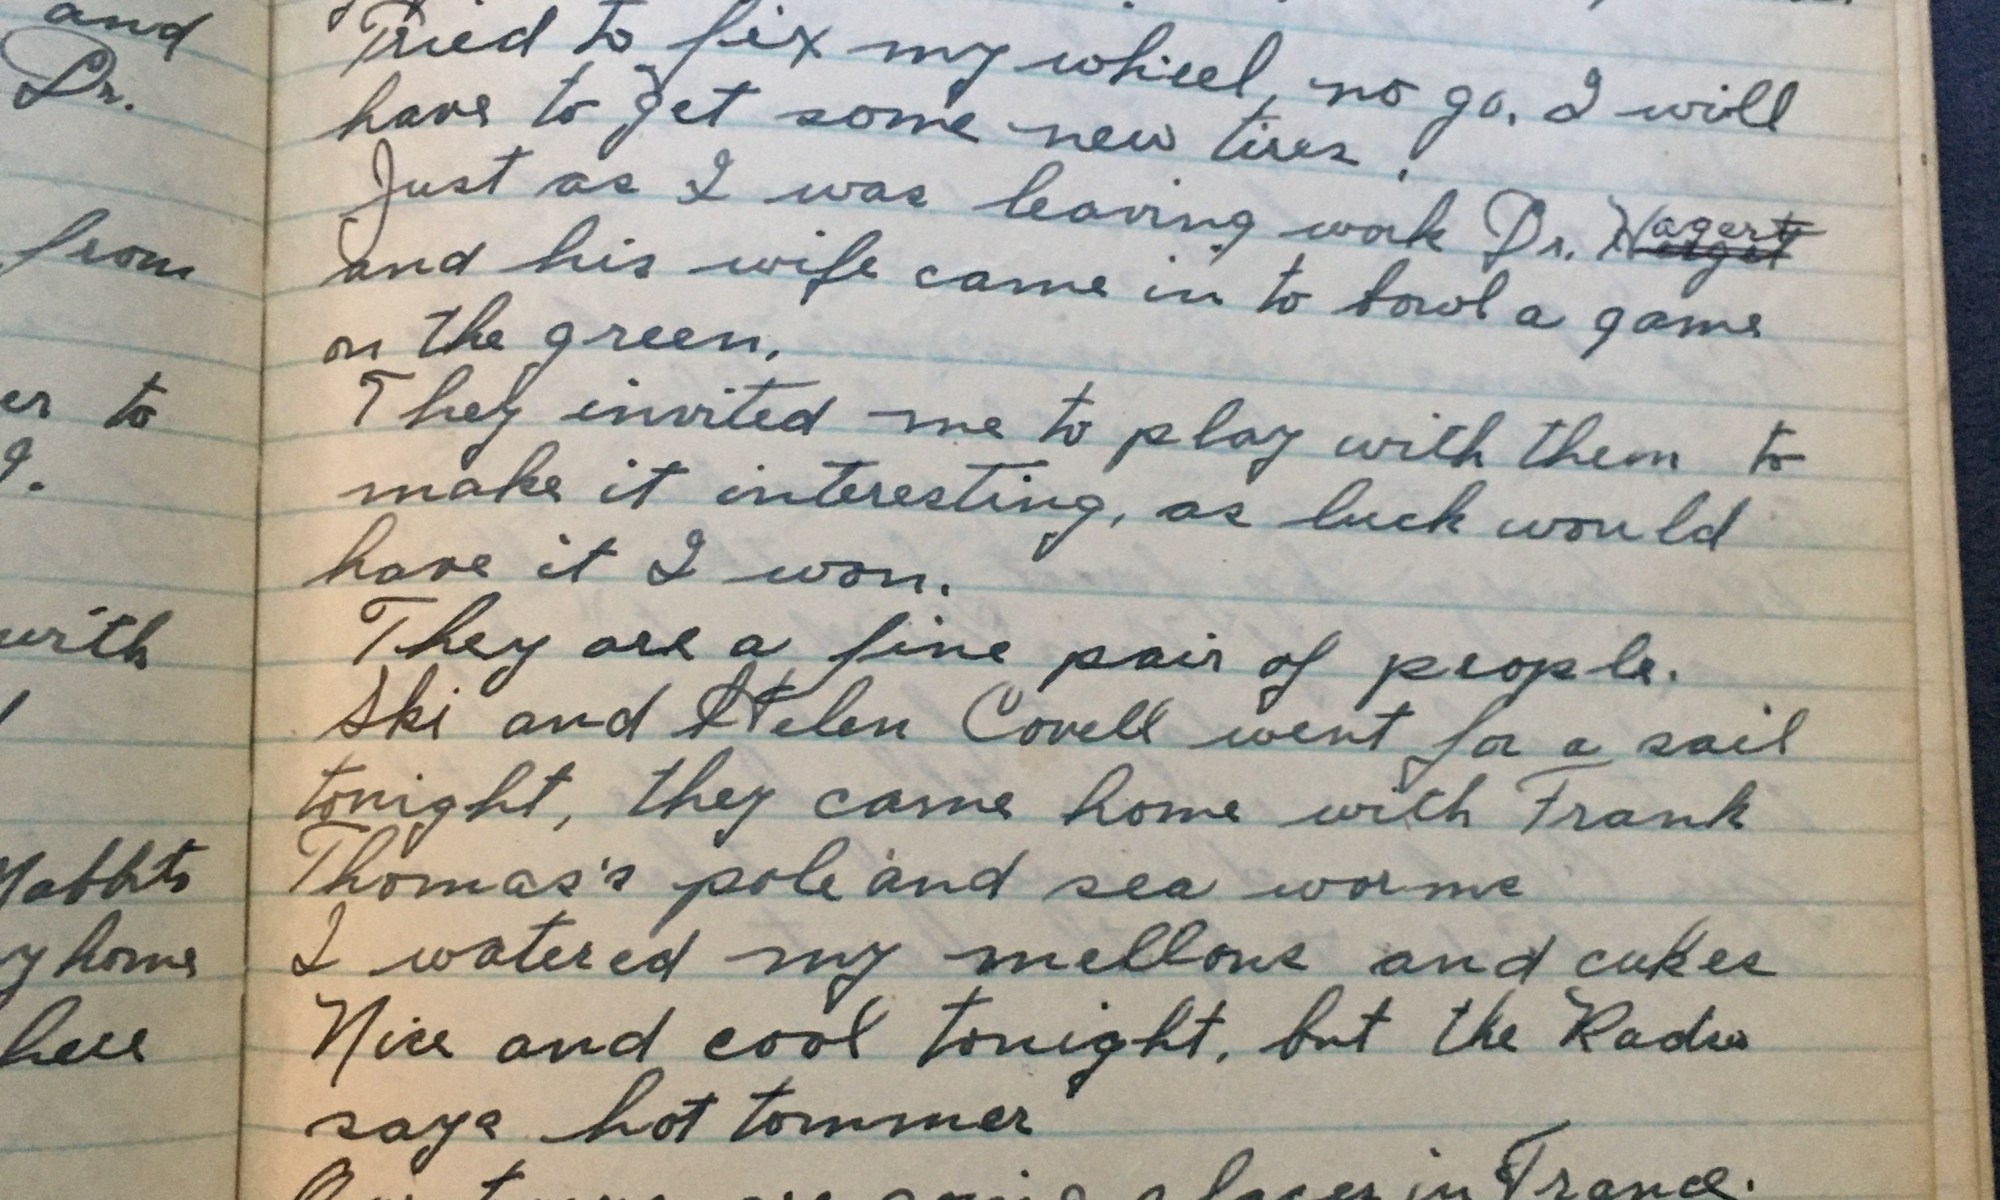 and
Dr.
from
er to
with
Nabbits
y home
here
Tried to fix my wheel, no go. I will
have to get some new tires.
Just as I was leaving work Dr. Hagert
and his wife came in to bowl a game
on the green.
They invited me to play with them to
make it interesting, as luck would
have it I won.
They are a fine pair of people.
Ski and Helen Covell went for a sail
tonight, they came home with Frank
Thomas's pole and sea worms
I watered my mellons and cukes
Nice and cool tonight, but the Radio
says hot tommer
in France.